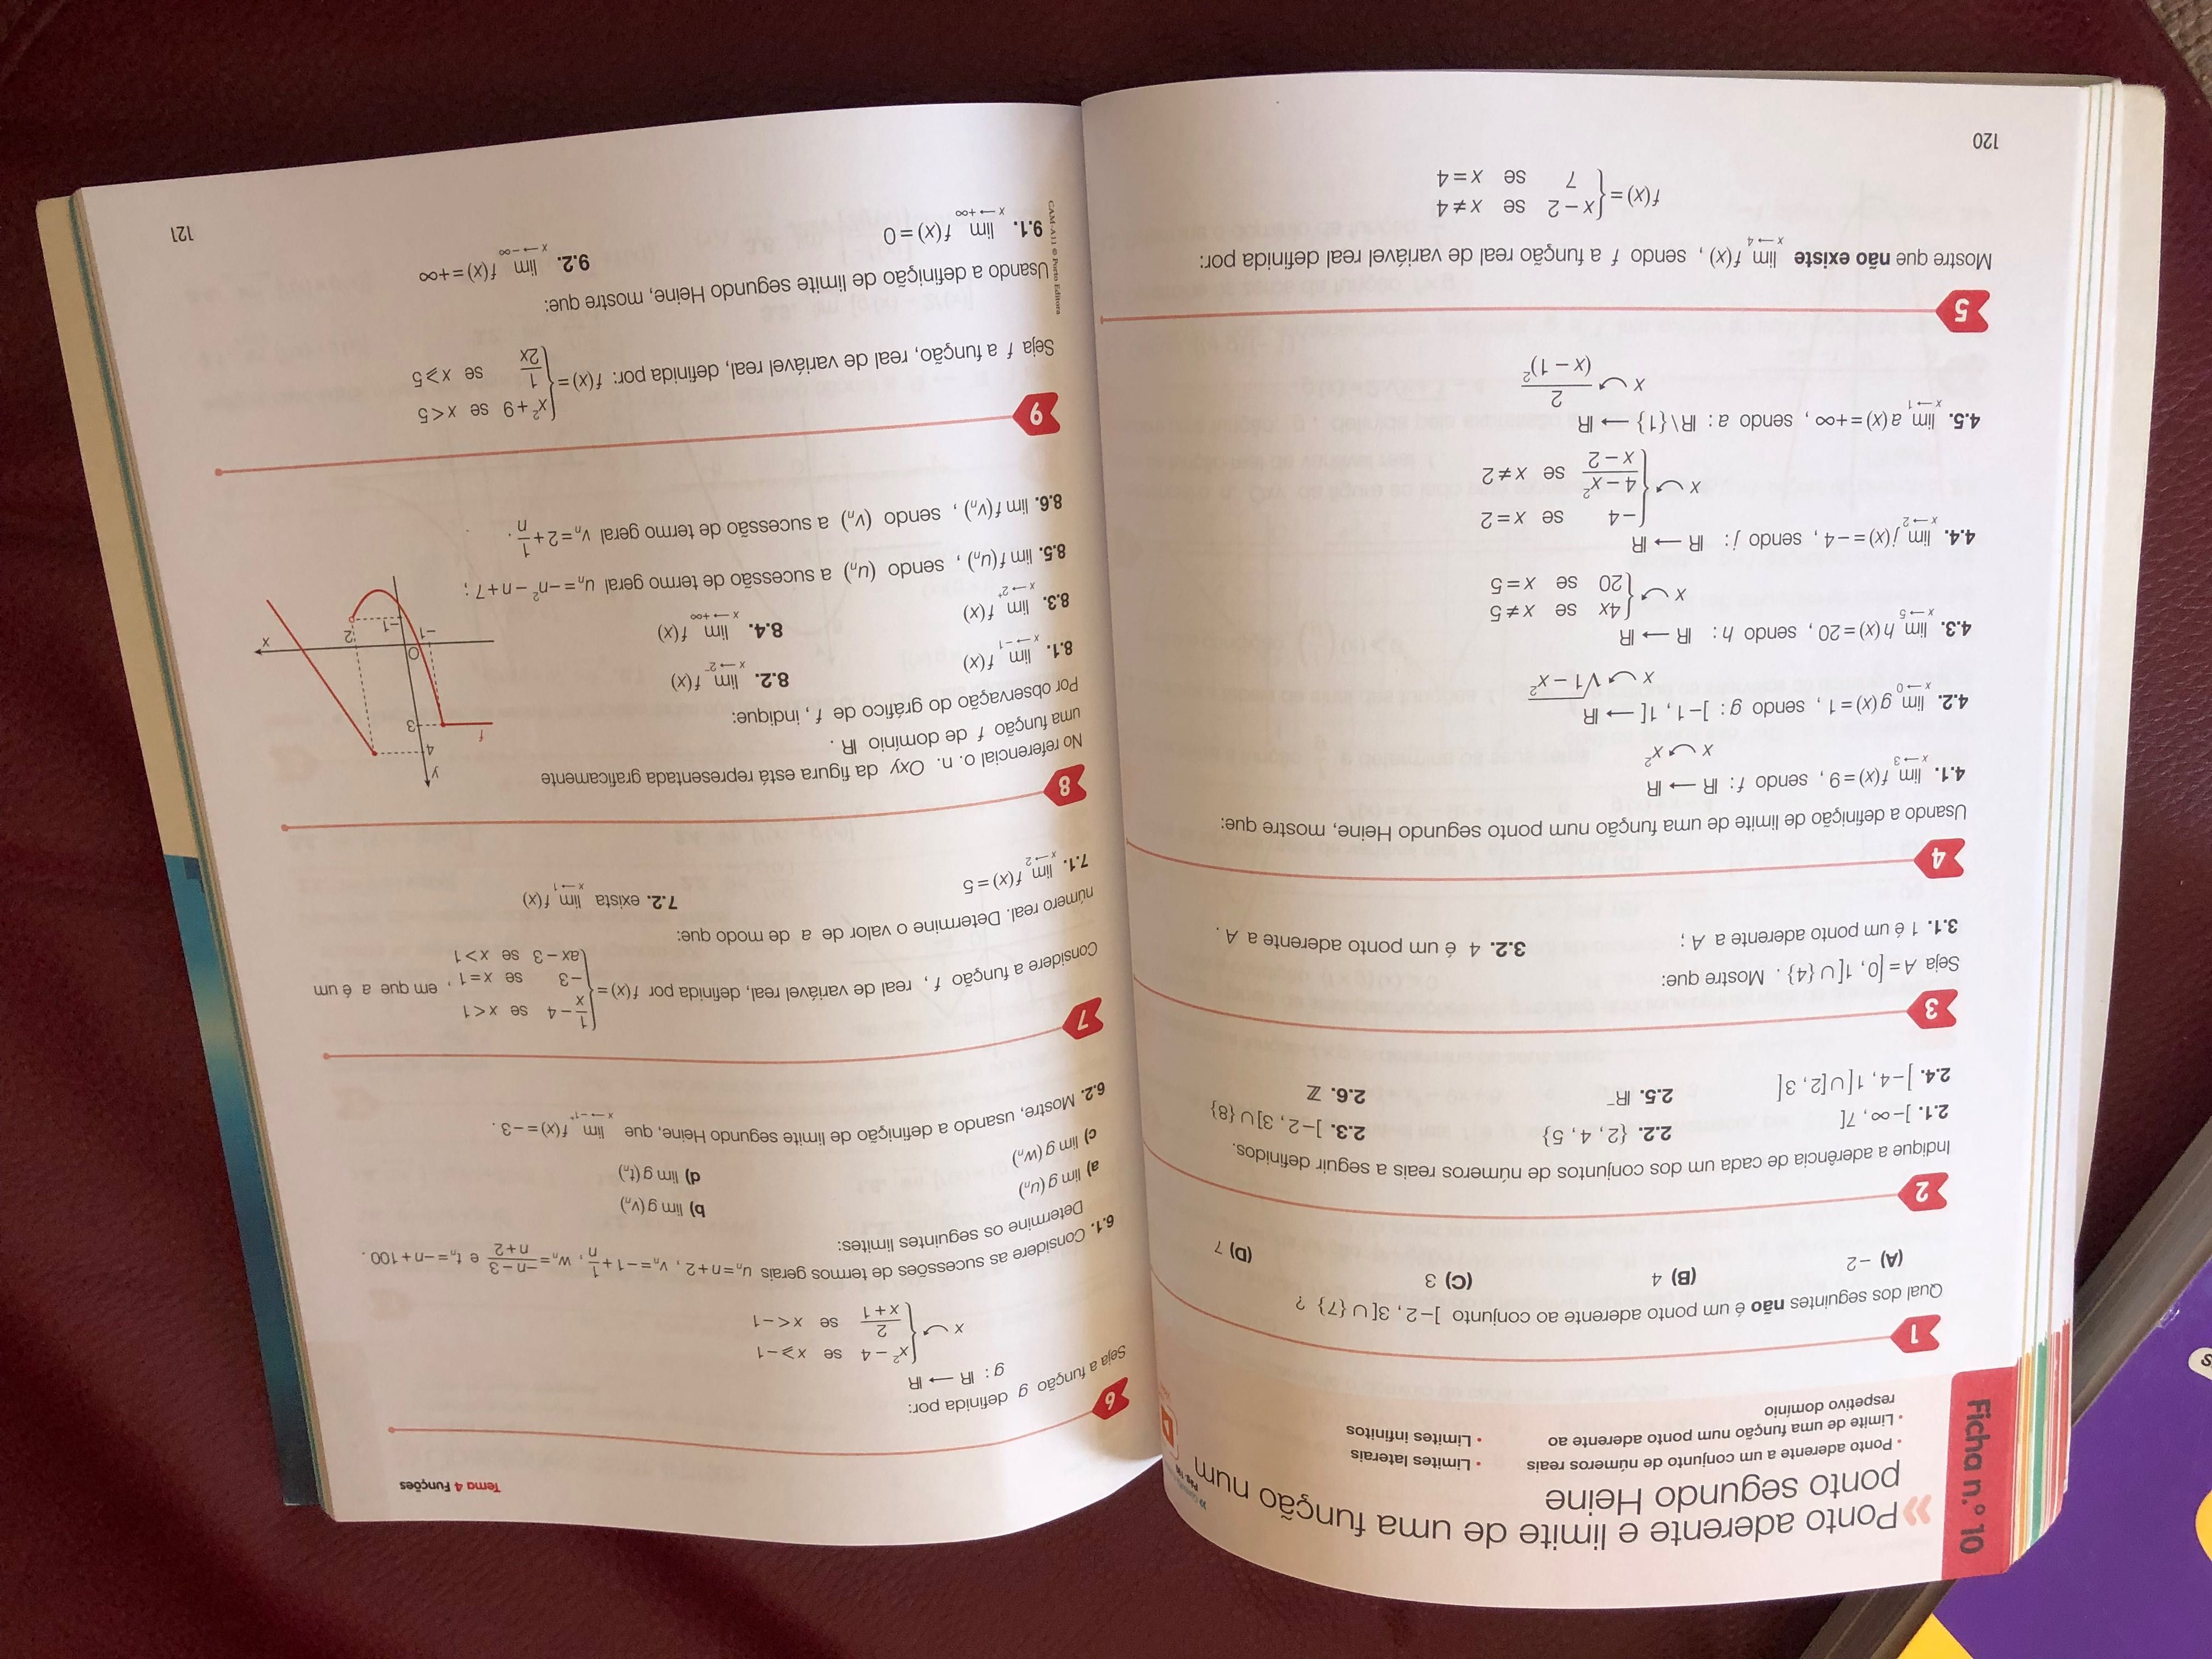 Ficha n.º 10
Ponto aderente e limite de uma função num
ponto segundo Heine
• Ponto aderente a um conjunto de números reais
• Limite de uma função num ponto aderente ao
respetivo domínio
• Limites laterais
• Limites infinitos
1
Qual dos seguintes não é um ponto aderente ao conjunto ]−2, 3[ ∪ {7} ?
(A) −2 (B) 4 (C) 3 (D) 7
2
Indique a aderência de cada um dos conjuntos de números reais a seguir definidos.
2.1. ]−∞, 7[ 2.2. {2, 4, 5} 2.3. ]−2, 3] ∪ {8}
2.4. ]−4, 1[ ∪ [2, 3[ 2.5. ℝ⁻ 2.6. ℤ
3
Seja A = [0, 1[ ∪ {4} . Mostre que:
3.1. 1 é um ponto aderente a A ; 3.2. 4 é um ponto aderente a A .
4
Usando a definição de limite de uma função num ponto segundo Heine, mostre que:
4.1. lim f(x) = 9 , sendo f : ℝ → ℝ
x → 3
x ↷ x²
4.2. lim g(x) = 1 , sendo g : ]−1, 1[ → ℝ
x → 0
x ↷ √1 − x²
4.3. lim h(x) = 20 , sendo h : ℝ → ℝ
x → 5
x ↷ {4x se x ≠ 5
20 se x = 5
4.4. lim j(x) = −4 , sendo j : ℝ → ℝ
x → 2
x ↷ {−4 se x = 2
4 − x² / x − 2 se x ≠ 2
4.5. lim a(x) = +∞ , sendo a : ℝ\{1} → ℝ
x → 1
x ↷ 2 / (x − 1)²
5
Mostre que não existe lim f(x) , sendo f a função real de variável real definida por:
x → 4
f(x) = {x − 2 se x ≠ 4
7 se x = 4
120
Tema 4 Funções
6
Seja a função g definida por:
g : ℝ → ℝ
x ↷ {x² − 4 se x ⩾ −1
2 / x + 1 se x < −1
6.1. Considere as sucessões de termos gerais uₙ = n + 2 , vₙ = −1 + 1/n , wₙ = −n − 3 / n + 2 e tₙ = −n + 100 .
Determine os seguintes limites:
a) lim g(uₙ) b) lim g(vₙ)
c) lim g(wₙ) d) lim g(tₙ)
6.2. Mostre, usando a definição de limite segundo Heine, que lim f(x) = −3 .
x → −1⁺
7
Considere a função f , real de variável real, definida por f(x) = {1/x − 4 se x < 1
−3 se x = 1 , em que a é um
ax − 3 se x > 1
número real. Determine o valor de a de modo que:
7.1. lim f(x) = 5 7.2. exista lim f(x)
x → 2 x → 1
8
No referencial o. n. Oxy da figura está representada graficamente
uma função f de domínio ℝ .
Por observação do gráfico de f , indique:
8.1. lim f(x) 8.2. lim f(x)
x → −1 x → 2⁻
8.3. lim f(x) 8.4. lim f(x)
x → 2⁺ x → +∞
8.5. lim f(uₙ) , sendo (uₙ) a sucessão de termo geral uₙ = −n² − n + 7 ;
8.6. lim f(vₙ) , sendo (vₙ) a sucessão de termo geral vₙ = 2 + 1/n .
y
4
f
3
−1
O
2
x
−1
9
Seja f a função, real de variável real, definida por: f(x) = {x² + 9 se x < 5
1 / 2x se x ⩾ 5
Usando a definição de limite segundo Heine, mostre que:
9.1. lim f(x) = 0 9.2. lim f(x) = +∞
x → +∞ x → −∞
CAM-A11 © Porto Editora
121